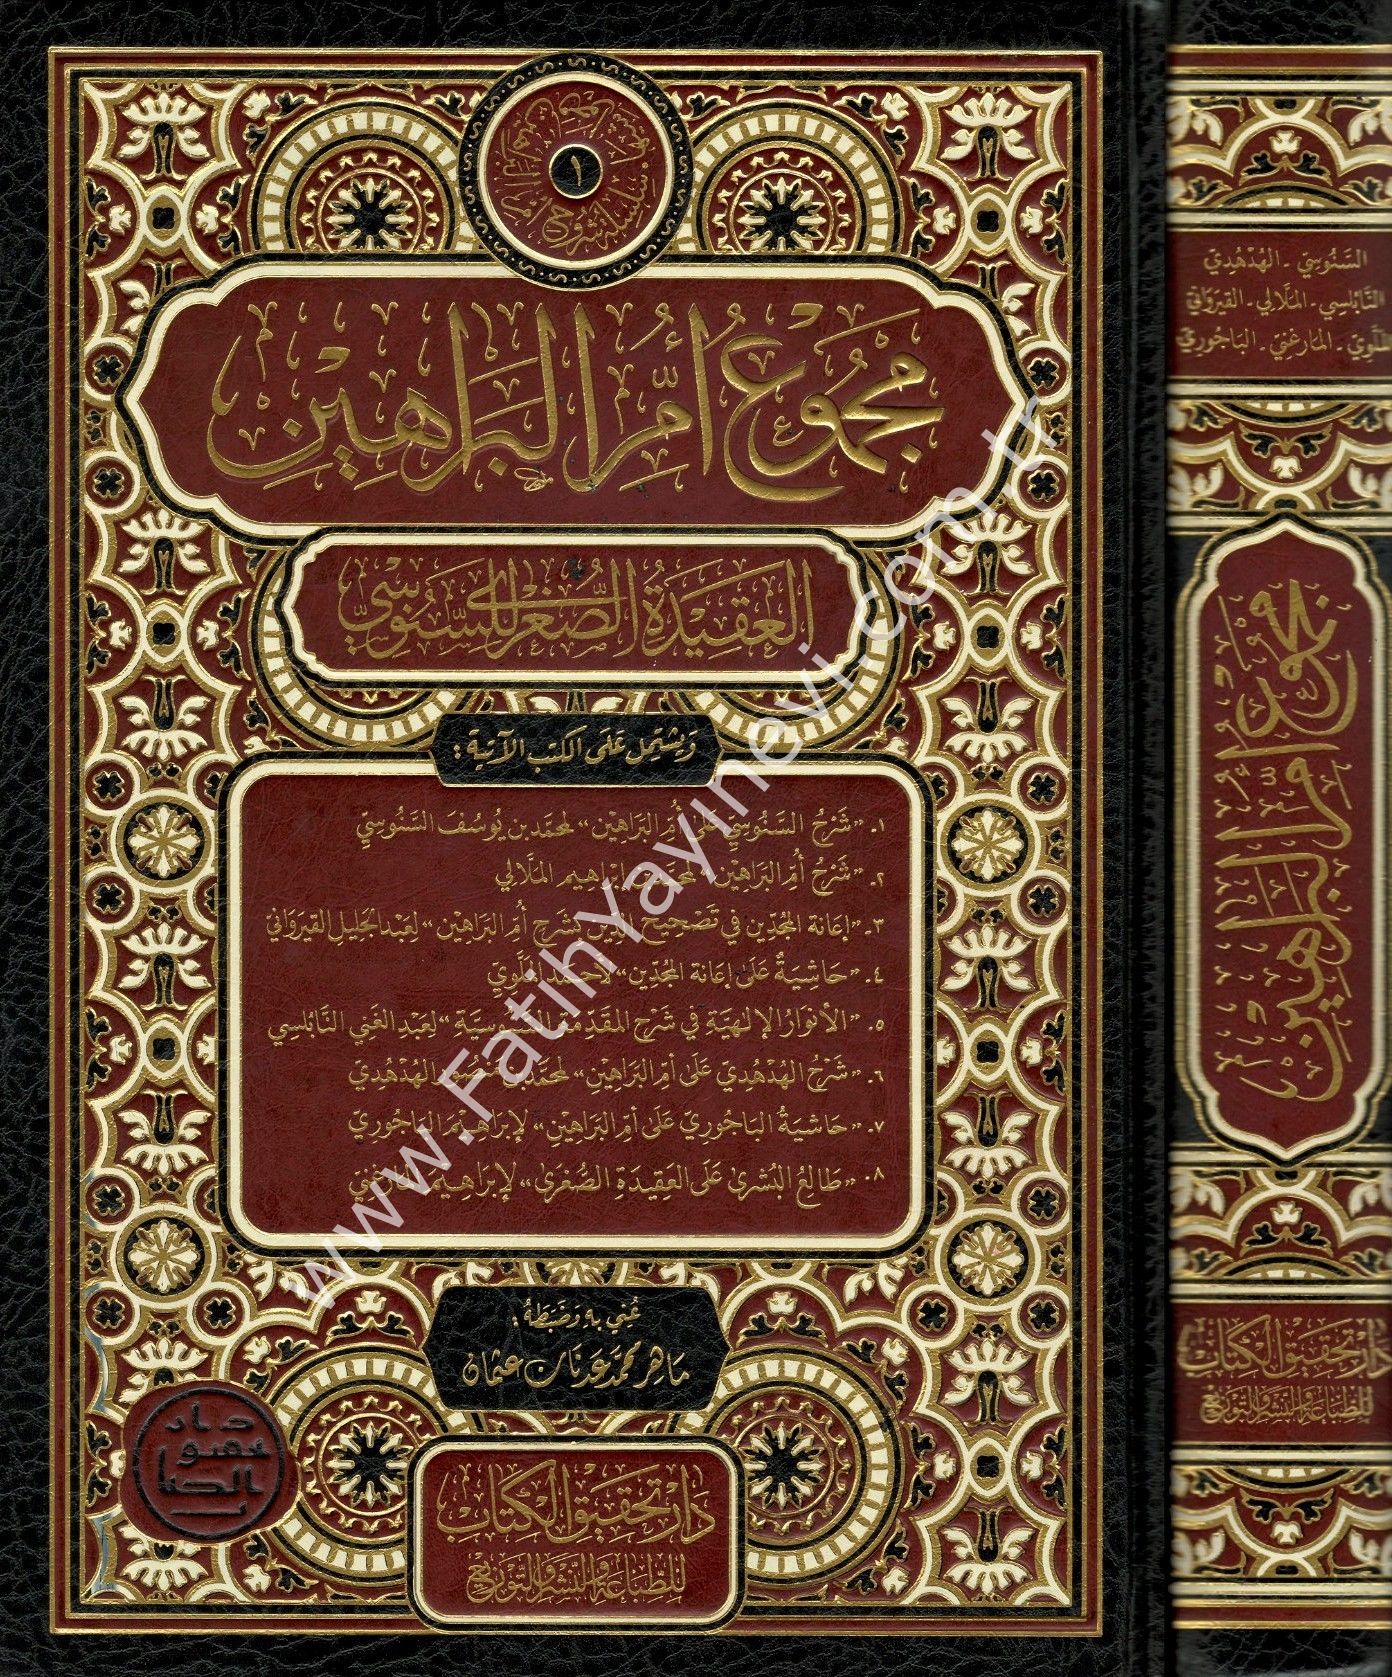 ١
سلسلة شروح أم البراهين
مَجْمُوعُ أُمِّ البَرَاهِينِ
العَقِيدَةُ الصُّغْرَى لِلسَّنُوسِيِّ
وَيشتمل عَلَى الكتب الآتية :
١. «شَرْحُ السَّنُوسِيِّ عَلَى أُمِّ البَرَاهِيْنِ» لمحمّد بن يُوسُفَ السَّنُوسِيِّ
٢. «شَرْحُ أُمِّ البَرَاهِيْنِ» لمحمّد بن إبْرَاهِيم المَلَّالِي
٣. «إعَانة المُجدِّين في تَصْحِيحِ الدِّين بشَرْحِ أُمِّ البَرَاهِيْن» لِعَبْدِ الجَلِيلِ القَيرَوَانيّ
٤. «حَاشِيَةٌ عَلَى إعَانة المُجدِّين» لأحمَد المَلَّوِيّ
٥. «الأنوَارُ الإلهيَّة في شَرْح المقَدِّمة السَّنُوسِيَّة» لِعَبْدِ الغَنِي النَّابُلسِي
٦. «شَرْحُ الهُدْهُدِيّ عَلَى أمِّ البَرَاهِيْنِ» لمحمَّد بن الهُدْهُدِيّ
٧. «حَاشِيَةُ البَاجُورِيّ عَلَى أمِّ البَرَاهِيْن» لإبْرَاهِيْمَ البَاجُورِيّ
٨. «طَالِعُ البُشْرَى عَلَى العَقِيدَةِ الصُّغرَى» لإبْرَاهِيمَ المارغنيّ
عُني به وَضَبَطَهُ :
مَاهِر محمّد عَدنَان عثمان
دار تحقيق الكتاب
دَار تحقِيق الكِتَاب
للطِّبَاعَةِ وَالنَّشْرِ وَالتَّوزيع
السَّنُوسِيّ - الهُدْهُدِيّ
النَّابُلسِي - المَلَّالي - القَيرَوَاني
المَلَّوِيّ - المَارغني - البَاجُورِيّ
مَجْمُوعُ أُمِّ البَرَاهِينِ
دَار تحقِيق الكِتَاب
للطِّبَاعَةِ وَالنَّشْرِ وَالتَّوزيع
www.FatihYayinevi.com.tr